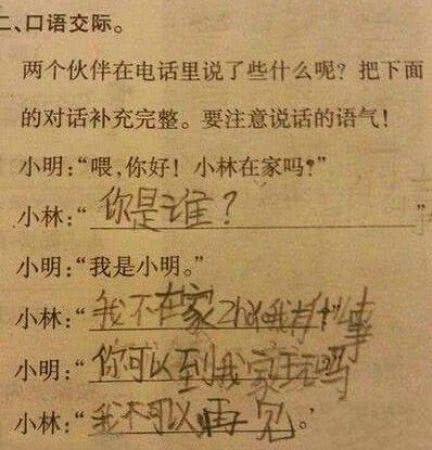 二、口语交际。
两个伙伴在电话里说了些什么呢？把下面
的对话补充完整。要注意说话的语气！
小明：“喂，你好！小林在家吗？”
小林：“你是谁？”
小明：“我是小明。”
小林：“我不在家 我有什 事
小明：“你可以到我家玩吗
小林：“我不可以再见。”